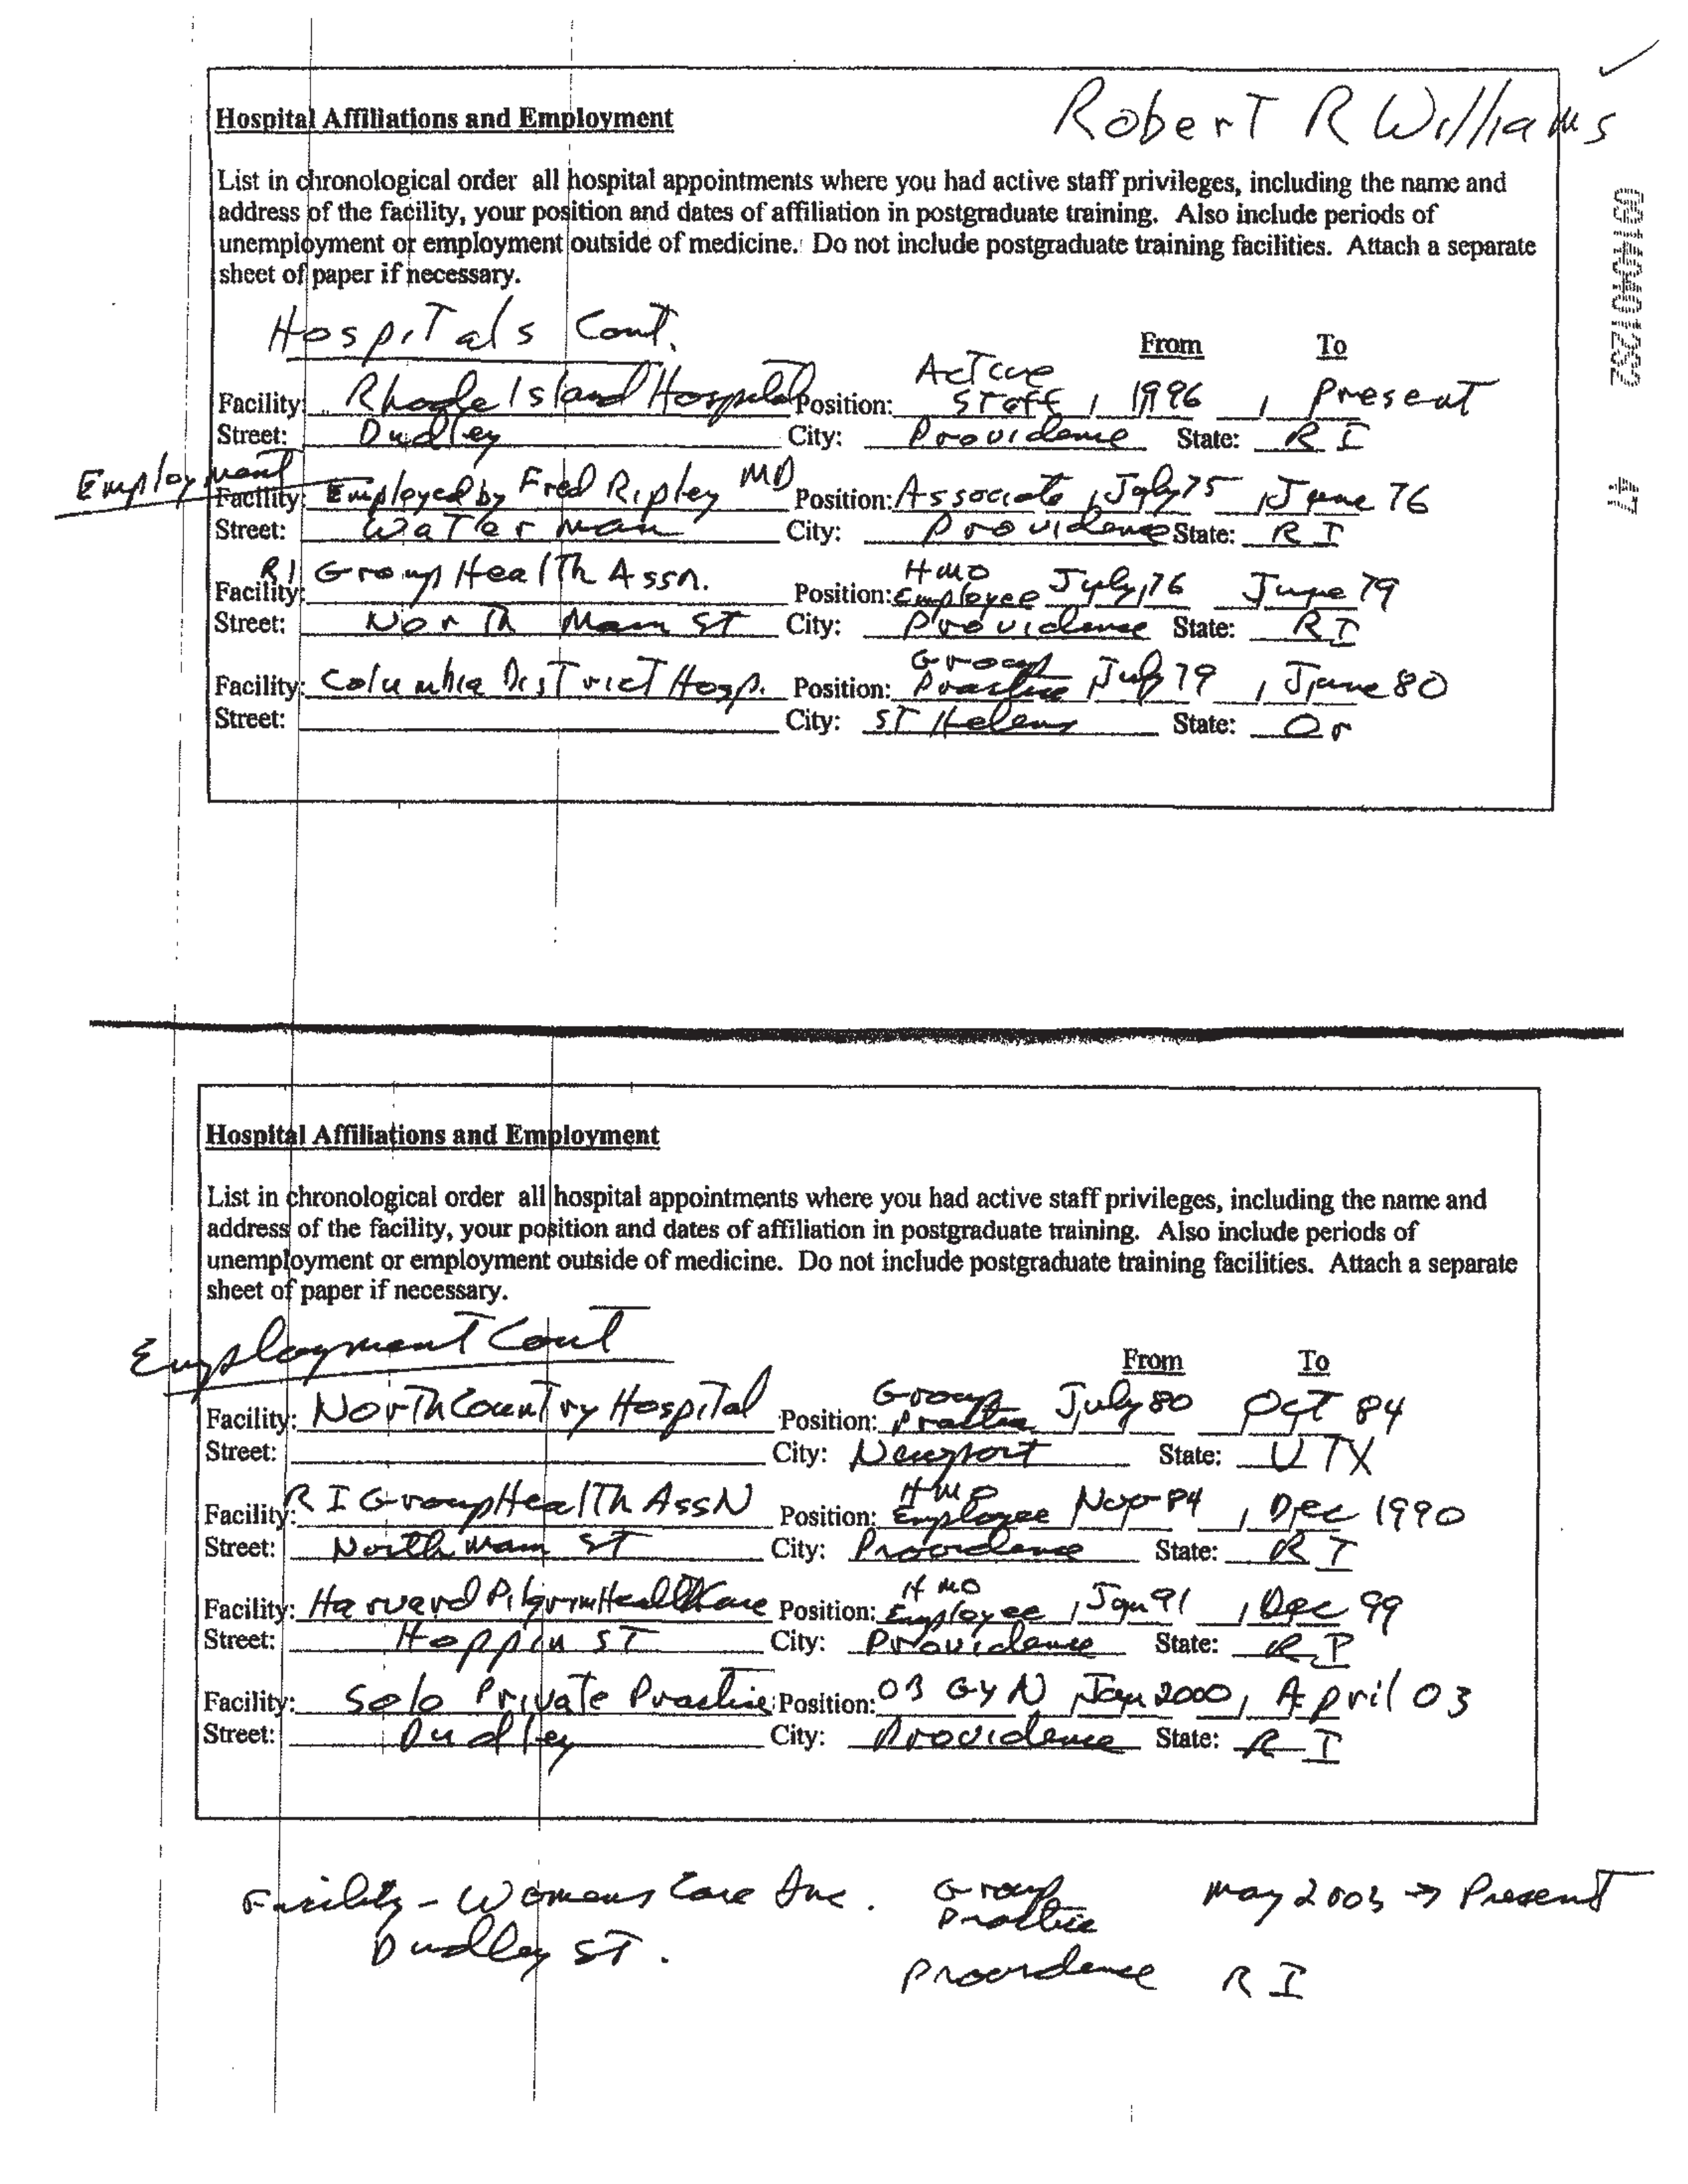 Robert R Williams
Hospital Affiliations and Employment
List in chronological order all hospital appointments where you had active staff privileges, including the name and
address of the facility, your position and dates of affiliation in postgraduate training. Also include periods of
unemployment or employment outside of medicine. Do not include postgraduate training facilities. Attach a separate
sheet of paper if necessary.
Hospitals Cont.
From To
Facility: Rhode Island Hospital Position: Active Staff, 1996, Present
Street: Dudley City: Providence State: RI
Employment
Facility: Employed by Fred Ripley MD Position: Associate, July 75, June 76
Street: Waterman City: Providence State: RI
Facility: RI Group Health Assn. Position: HMO Employee July, 76 June 79
Street: North Main ST City: Providence State: RI
Facility: Columbia District Hosp. Position: Group Practice, July 79, June 80
Street: City: ST Helens State: Or
47
Hospital Affiliations and Employment
List in chronological order all hospital appointments where you had active staff privileges, including the name and
address of the facility, your position and dates of affiliation in postgraduate training. Also include periods of
unemployment or employment outside of medicine. Do not include postgraduate training facilities. Attach a separate
sheet of paper if necessary.
Employment Cont
From To
Facility: North Country Hospital Position: Group Practice July 80 Oct 84
Street: City: Newport State:
Facility: RI Group Health AssN Position: HMO Employee Nov 84, Dec 1990
Street: North Main ST City: Providence State: RI
Facility: Harvard Pilgrim Health Care Position: HMO Employee, Jan 91, Dec 99
Street: Hoppin ST City: Providence State: RI
Facility: Solo Private Practice Position: OB GYN, Jan 2000, April 03
Street: Dudley City: Providence State: RI
Facility - Womens Care Inc. Group Practice May 2003 → Present
Dudley ST. Providence RI